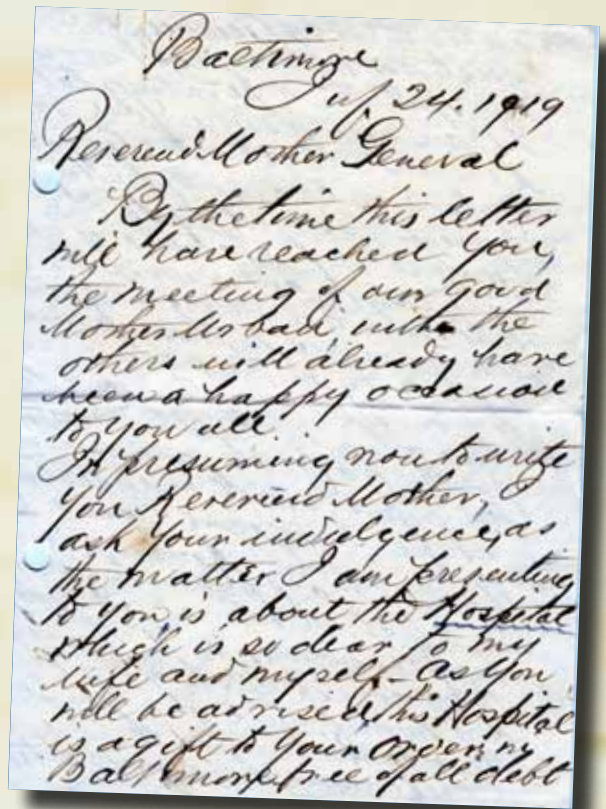 Baltimore
24. 1919
Reverend Mother General
By the time this letter
will have reached you,
the meeting of our good
Mother Urban with the
others will already have
been a happy occasion
to you all.
In presuming now to write
you Reverend Mother, I
ask your indulgence, as
the matter I am presenting
to you is about the Hospital
which is so dear to my
wife and myself - As you
will be advised, this Hospital
is a gift to your order, in
Baltimore, free of all debt